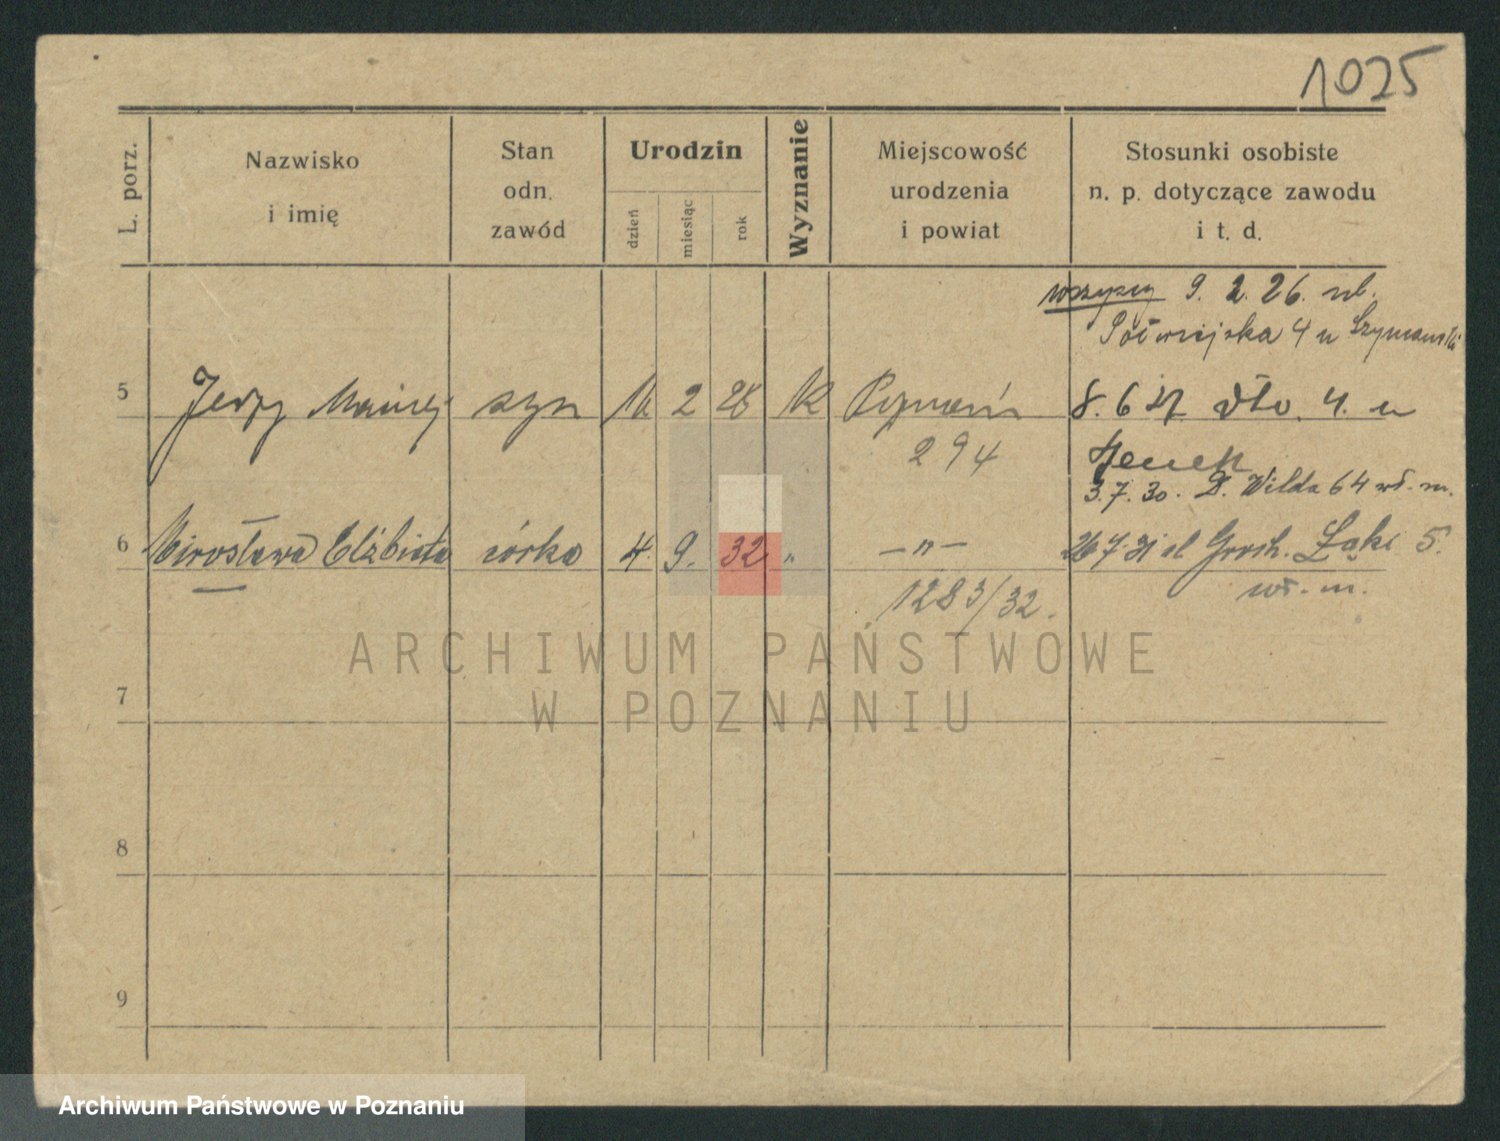 1025
L. porz.
Nazwisko
i imię
Stan
odn.
zawód
Urodzin
dzień
miesiąc
rok
Wyznanie
Miejscowość
urodzenia
i powiat
Stosunki osobiste
n. p. dotyczące zawodu
i t. d.
wszyscy 9. 2. 26. ul.
Półwiejska 4 u Szymanski
5 Jerzy syn 2 28 Poznań 8. 6 dto. 4. u
294
3. 7. 30. D. Wilda 64 wł. m.
6 Mirosława Elżbieta córka 4. 9. 32 " —"— 26 7 31 ul Groch. Łąki 5.
1283/32. wł. m.
7
8
9
ARCHIWUM PAŃSTWOWE
W POZNANIU
Archiwum Państwowe w Poznaniu